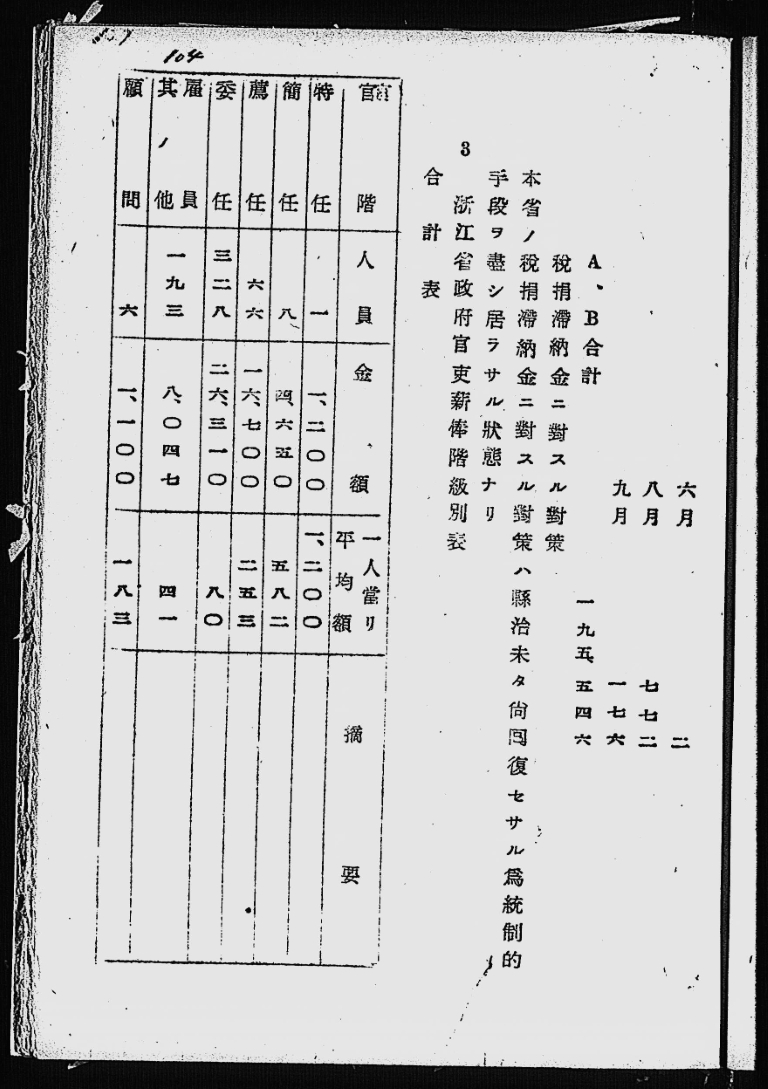 104
六月 二
八月 七七二
九月 一七六
A、B合計 一九五、五四六
稅捐滯納金ニ對スル對策
本省ノ稅捐滯納金ニ對スル對策ハ縣治未タ尙囘復セサル爲統制的
手段ヲ盡シ居ラサル狀態ナリ
3 浙江省政府官吏薪俸階級別表
合計表
官階 人員 金額 一人當リ平均額 摘要
特任 一 一、二〇〇 一、二〇〇
簡任 八 四、六五〇 五八二
薦任 六六 一六、七〇〇 二五三
委任 三二八 二六、三一〇 八〇
雇員其ノ他 一九三 八、〇四七 四一
顧問 六 一、一〇〇 一八三